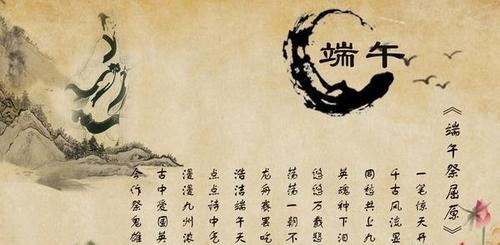 端午
《端午祭屈原》
一笔惊天丹
千古风流墨
同愁共上九
英魂神下泪
悠悠万载悲
荡荡一朝不
龙舟赛罢吃
浩洁端午天
点点诗中
漫漫九州浓
古中爱国英
合作祭鬼雄